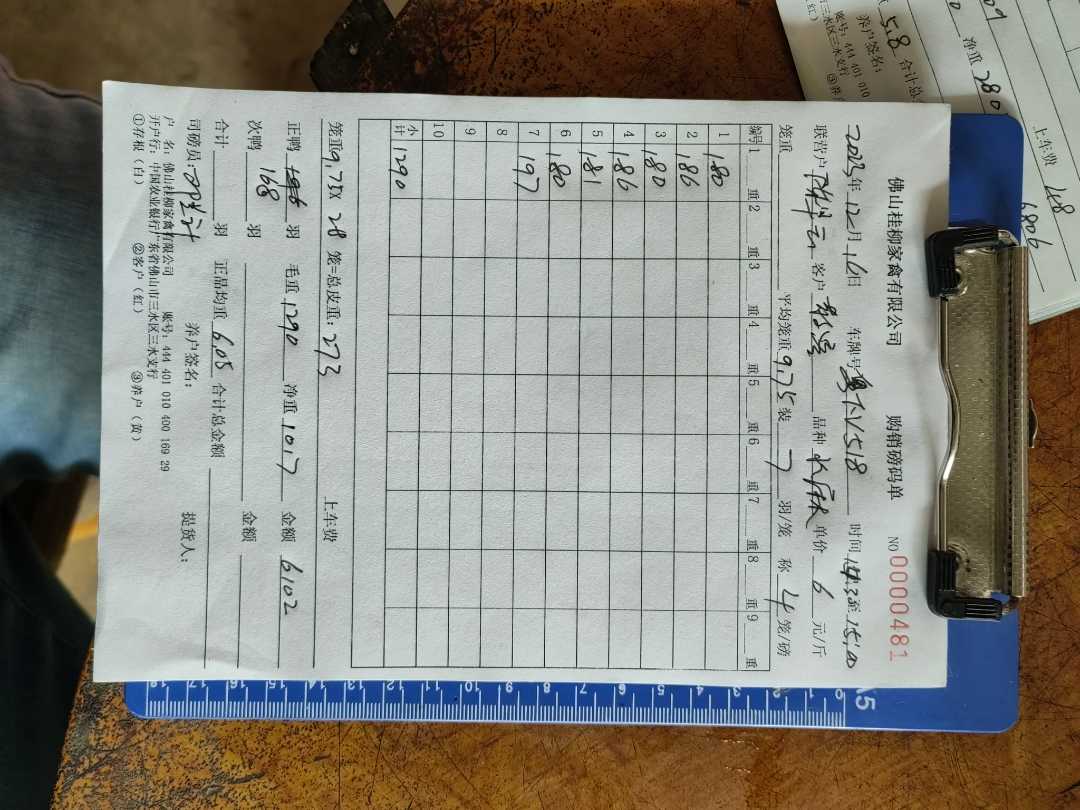 佛山桂柳家禽有限公司 购销磅码单 NO 0000481
2023年12月16日 车牌号 V518 时间 至15:00
联营户 客户 品种 单价 6 元/斤
笼重 平均笼重 9.75 装 7 羽/笼 称 4 笼/磅
编号 1 重 2 重 3 重 4 重 5 重 6 重 7 重 8 重 9 重
1 180
2 186
3 180
4 186
5 181
6 180
7 197
8
9
10
小计 1290
笼重9.75X 28 笼=总皮重: 273 上车费
正鸭 196 168 羽 毛重 1290 净重 1017 金额 6102
次鸭 羽 金额
合计 羽 正品均重 6.05 合计总金额
司磅员: 养户签名: 提货人:
户 名: 佛山桂柳家禽有限公司 账号: 444 401 010 400 169 29
开户行: 中国农业银行广东省佛山市三水区三水支行
①存根（白） ②客户（红） ③养户（黄）
净重 280
上车费 48
6806
5.8 合计总
养户签名:
账号: 444 401 010
三水区三水支行
（红） ③养
A5
0 1 2 3 4 5 6 7 8 9 10 11 12 13 14 15 16 17 18